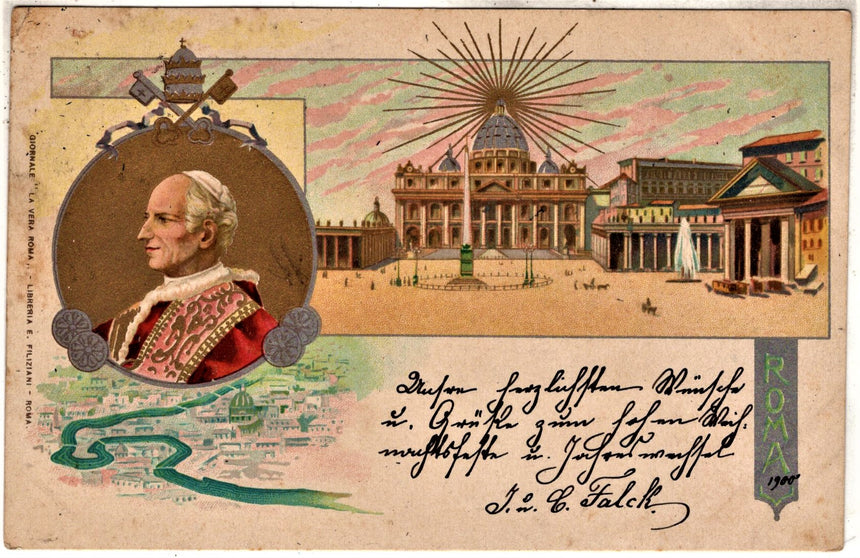 GIORNALE "LA VERA ROMA„ - LIBRERIA E. FILIZIANI - ROMA
Unsre herzlichsten Wünsche
u. Grüße zum hohen Weih-
nachtsfeste u. Jahreswechsel
J. u. C. Falck.
ROMA
1900